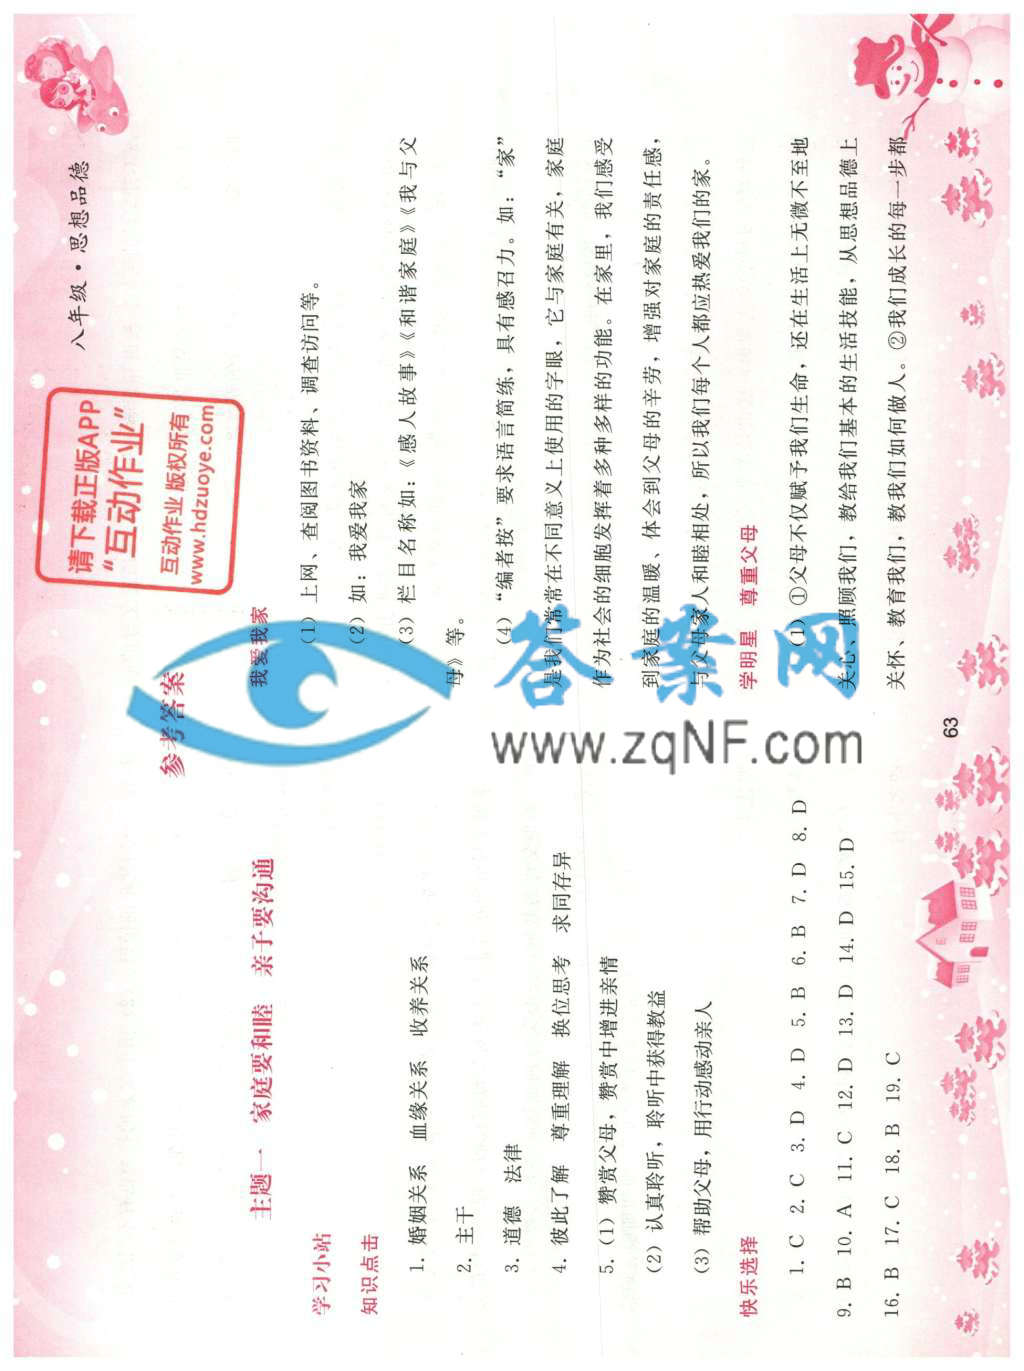 八年级·思想品德
请下载正版APP
“互动作业”
互动作业 版权所有
www.hdzuoye.com
参考答案
主题一 家庭要和睦 亲子要沟通
学习小站
知识点击
1. 婚姻关系 血缘关系 收养关系
2. 主干
3. 道德 法律
4. 彼此了解 尊重理解 换位思考 求同存异
5. (1) 赞赏父母，赞赏中增进亲情
(2) 认真聆听，聆听中获得教益
(3) 帮助父母，用行动感动亲人
快乐选择
1. C 2. C 3. D 4. D 5. B 6. B 7. D 8. D
9. B 10. A 11. C 12. D 13. D 14. D 15. D
16. B 17. C 18. B 19. C
我爱我家
(1) 上网、查阅图书资料、调查访问等。
(2) 如：我爱我家
(3) 栏目名称如：《感人故事》《和谐家庭》《我与父
母》等。
(4) “编者按”要求语言简练，具有感召力。如：“家”
是我们常常在不同意义上使用的字眼，它与家庭有关，家庭
作为社会的细胞发挥着多种多样的功能。在家里，我们感受
到家庭的温暖、体会到父母的辛劳，增强对家庭的责任感，
与父母家人和睦相处，所以我们每个人都应热爱我们的家。
学明星 尊重父母
(1) ①父母不仅赋予我们生命，还在生活上无微不至地
关心、照顾我们，教给我们基本的生活技能，从思想品德上
关怀、教育我们，教我们如何做人。②我们成长的每一步都
63
答案网
www.zqNF.com